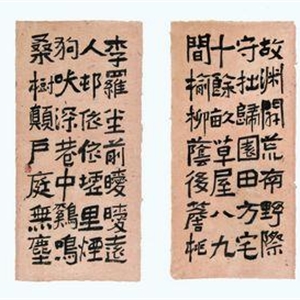 故渊開荒南野際
守拙歸園田方宅
十餘畝草屋八九
間榆柳蔭後簷桃
李羅堂前曖曖遠
人邨依依墟里煙
狗吠深巷中鷄鳴
桑樹顛戶庭無塵